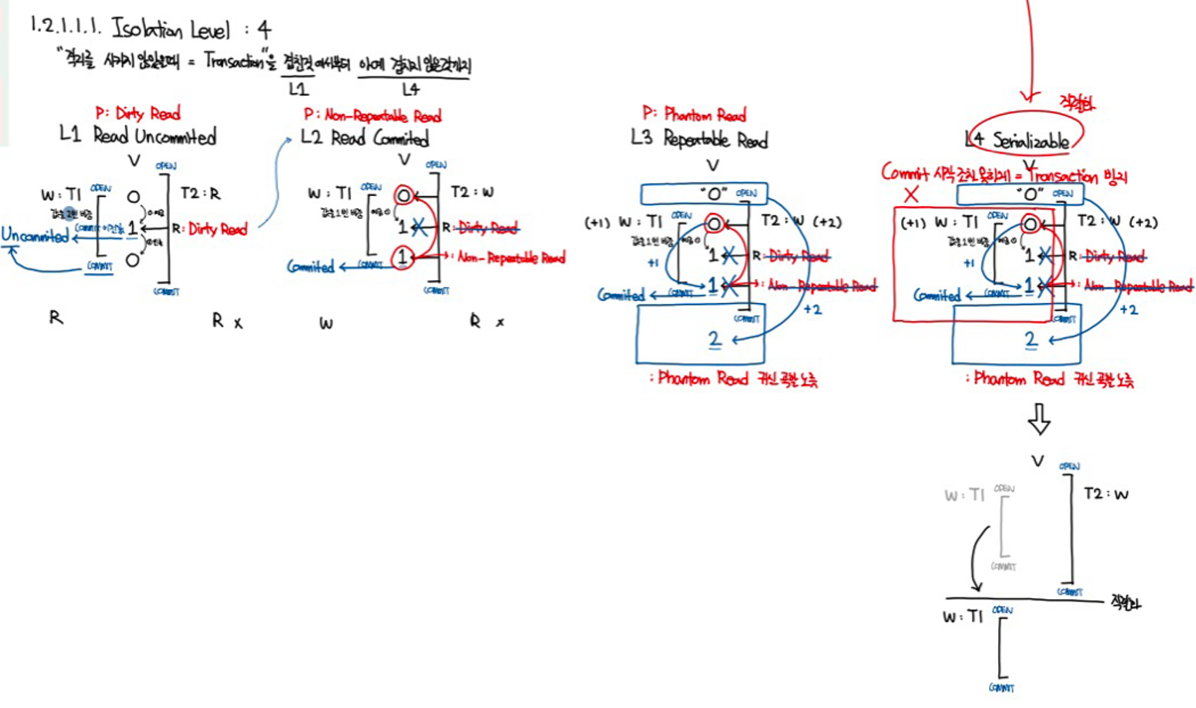 1.2.1.1.1. Isolation Level : 4
"격리를 시키지 않았을때 = Transaction"을 겹친것에서부터 아예 겹치지 않은것까지
L1 L4
P: Dirty Read
L1 Read Uncommited
V
OPEN
W : T1 OPEN 0 T2 : R
1 R: Dirty Read
Uncommited
0
COMMIT
COMMIT
R R x
P: Non-Repeatable Read
L2 Read Commited
V
OPEN
W : T1 OPEN 0 T2 : W
1 X R: Dirty Read
1 : Non-Repeatable Read
Commited COMMIT
COMMIT
W R x
P: Phantom Read
L3 Repeatable Read
V
"0" OPEN
(+1) W : T1 OPEN 0 T2 : W (+2)
1 X R: Dirty Read
+1
1 X : Non-Repeatable Read
Commited COMMIT
COMMIT +2
2
: Phantom Read 귀신 곡분 노출
직렬화
L4 Serializable
V
Commit 시작 조차 못하게 = Transaction 방지
X
"0" OPEN
(+1) W : T1 OPEN 0 T2 : W (+2)
1 X R: Dirty Read
+1
1 X : Non-Repeatable Read
Commited COMMIT
COMMIT +2
2
: Phantom Read 귀신 곡분 노출
V
OPEN
W : T1 OPEN T2 : W
COMMIT
COMMIT
직렬화
W : T1 OPEN
COMMIT